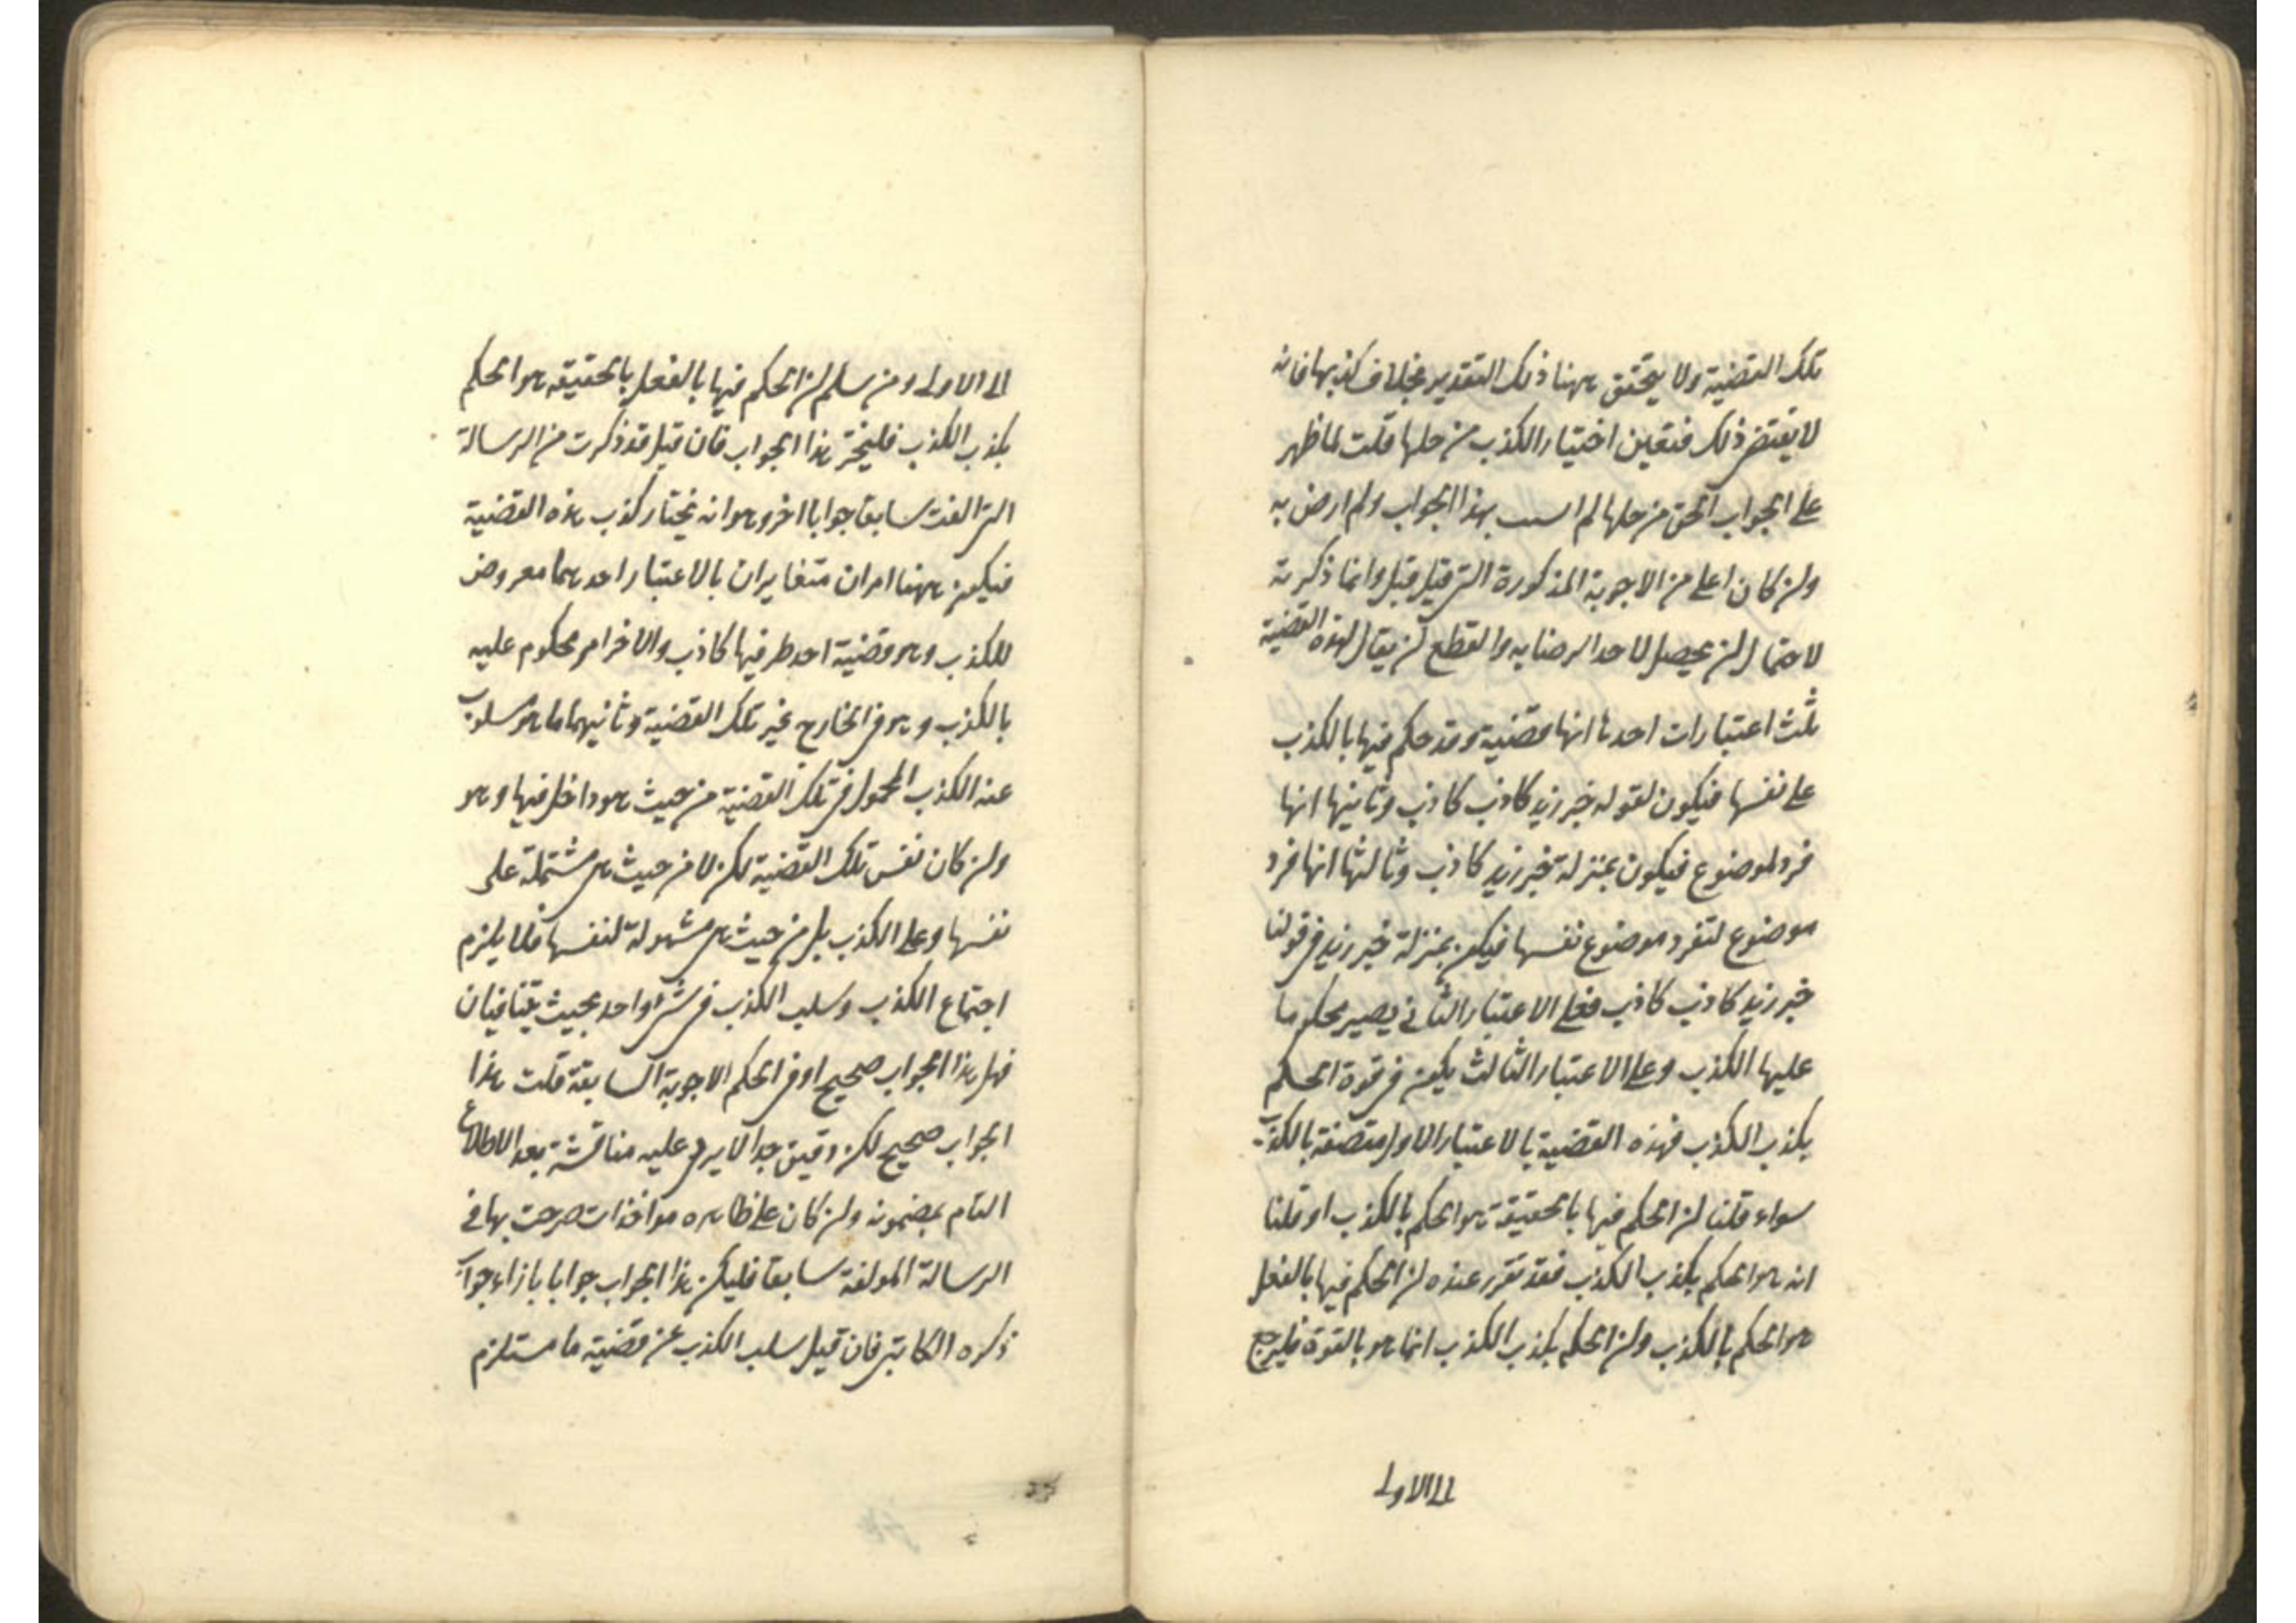 تلك القضية ولا يتحقق ههنا ذلك التقدير بخلاف كذبها فانه
لا يقتضى ذلك فتعين اختيار الكذب من حلها قلت لما ظهر
على الجواب الحق من حلها لم اسب بهذا الجواب ولم ارض به
وان كان اعلى من الاجوبة المذكورة التى قيل قبل وانما ذكرته
لاحتمال ان يحصل لاحد الرضا به والقطع ان يقال لهذه القضية
ثلث اعتبارات احدها انها قضية وقد حكم فيها بالكذب
على نفسها فيكون لقوله خبر زيد كاذب كاذب وثانيها انها
فرد لموضوع فيكون بمنزلة خبر زيد كاذب وثالثها انها فرد
موضوع لتفرد موضوع نفسها فيكون بمنزلة خبر زيد فى قولنا
خبر زيد كاذب كاذب فعلى الاعتبار الثانى يصير محكوما
عليها الكذب وعلى الاعتبار الثالث يكون فى قوة الحكم
بكذب الكذب فهذه القضية بالاعتبار الاول متصفة بالكذب
سواء قلنا ان الحكم فيها بالحقيقة هو الحكم بالكذب او قلنا
انه هو الحكم بكذب الكذب فقد تقرر عنده ان الحكم فيها بالفعل
هو الحكم بالكذب وان الحكم بكذب الكذب انما هو بالقوة فليرجع
الى الاولى
الى الاولى ومن سلم ان الحكم فيها بالفعل بالحقيقه هو الحكم
بكذب الكذب فليختر هذا الجواب فان قيل قد ذكرت من الرسالة
التى الفت سابقا جوابا اخر وهو انه نختار كذب هذه القضية
فيكون ههنا امران متغايران بالاعتبار احدهما معروض
للكذب وهو قضية احد طرفيها كاذب والاخر امر محكوم عليه
بالكذب وهو فى الخارج غير تلك القضية وثانيهما ما هو مسلوب
عنه الكذب المحمول فى تلك القضية من حيث هو داخل فيها وهو
وان كان نفس تلك القضية لكن لا من حيث هى مشتملة على
نفسها وعلى الكذب بل من حيث هى مشمولة لنفسها فلا يلزم
اجتماع الكذب وسلب الكذب فى شئ واحد بحيث يتنافيان
فهل هذا الجواب صحيح او فى الحكم الاجوبة السابقة قلت هذا
الجواب صحيح لكن دقيق جدا لا يرد عليه مناقشة بعد الاطلاع
التام بمضمونه وان كان على ظاهره مواخذات صرحت بها فى
الرسالة المولفة سابقا فليكن هذا الجواب جوابا بازاء جواب
ذكره الكاتبى فان قيل سلب الكذب عن قضية ما مستلزم